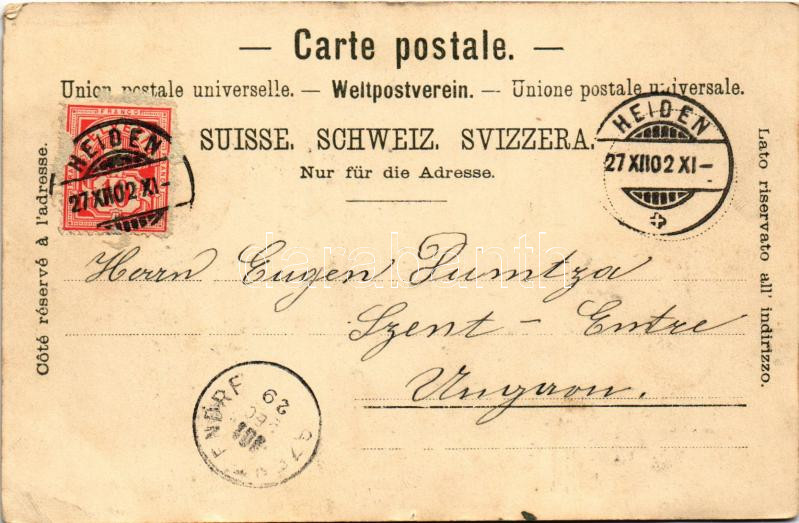 — Carte postale. —
Union postale universelle. — Weltpostverein. — Unione postale universale.
SUISSE. SCHWEIZ. SVIZZERA.
Nur für die Adresse.
Côté réservé à l'adresse.
Lato riservato all' indirizzo.
FRANCO
HEIDEN
27 XII 02 XI–
HEIDEN
27 XII 02 XI–
Herrn Eugen Dumtza
Szent - Entre
Ungarn.
29
DEC
darabanth